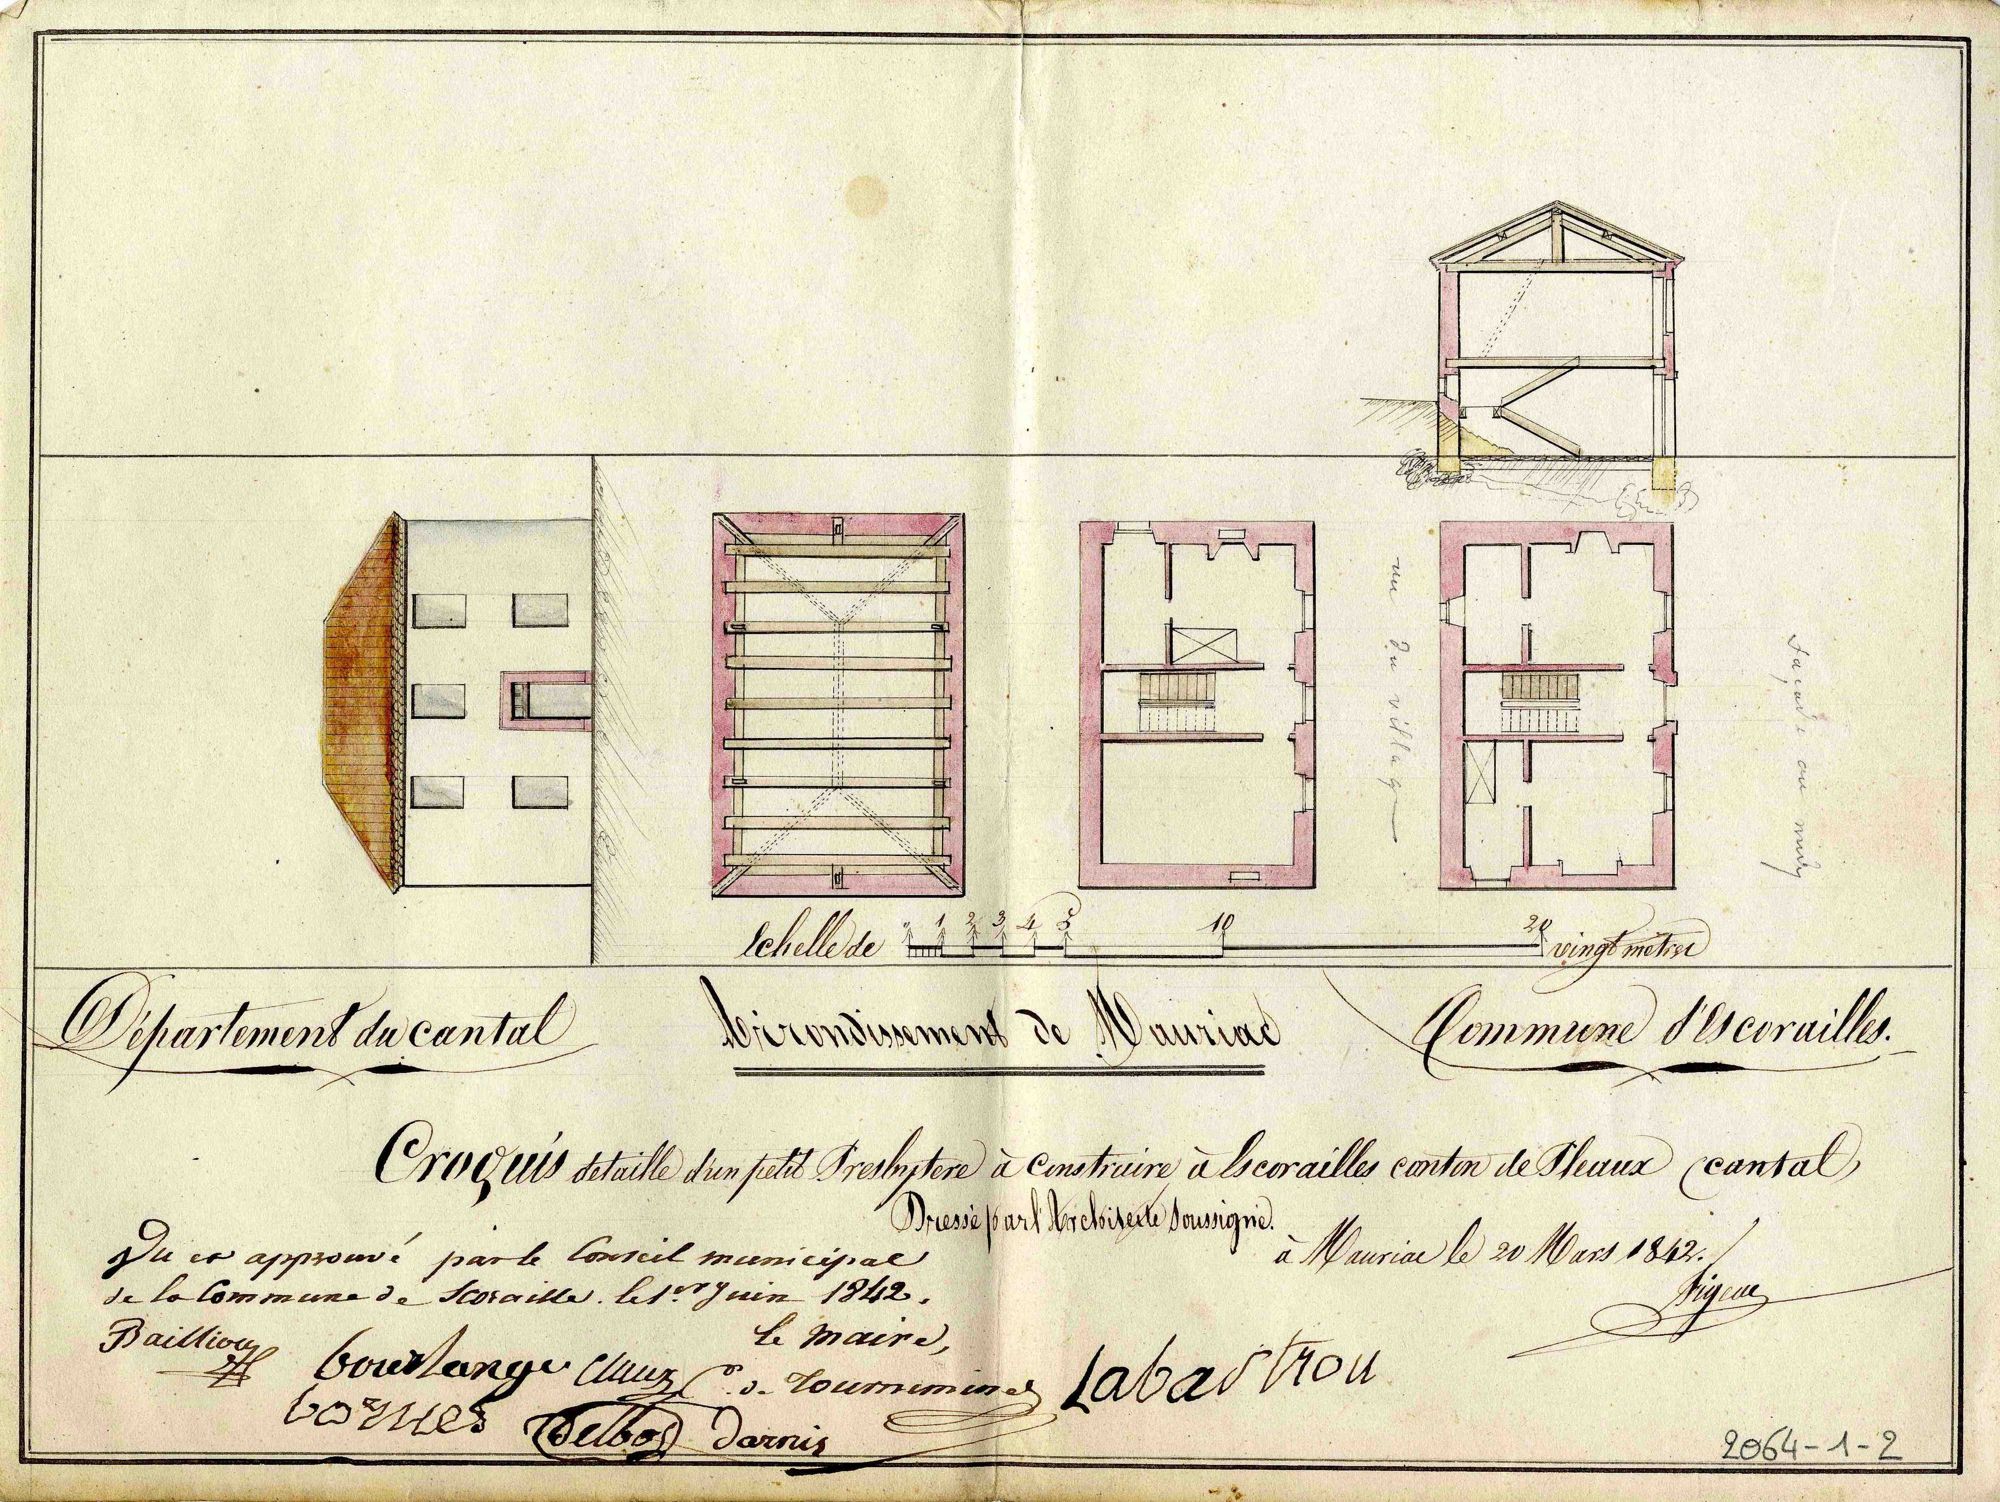 vu du village
façade au midy
Echelle de 1 2 3 4 5 10 20 vingt mètres
Département du Cantal
Arrondissement de Mauriac
Commune d'Escorailles.
Croquis detaillé d'un petit Presbytere à Construire à Escorailles canton de Pleaux (cantal)
Dressé par l'Architecte Soussigné.
à Mauriac le 20 Mars 1842.
Vu et approuvé par le Conseil municipal
de la Commune de Scoraille. le 1er Juin 1842.
le maire,
Bailliou
boullange
Claux
C. de Tournemine
Labastrou
bornes
Delbos
Darnis
2064-1-2